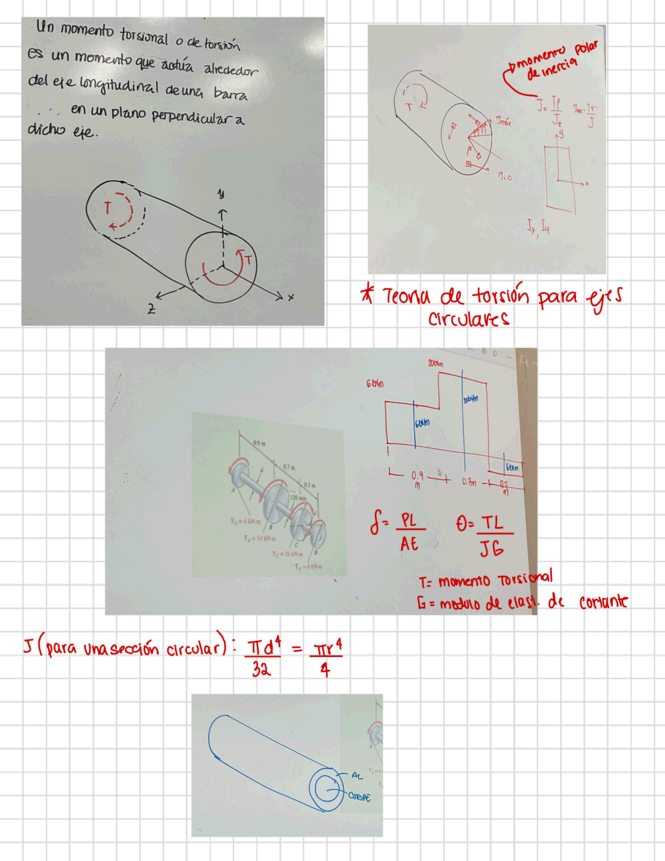 Un momento torsional o de torsión
es un momento que actúa alrededor
del eje longitudinal de una barra
en un plano perpendicular a
dicho eje.
T
T
y
x
z
momento polar
de inercia
T
* Teoria de torsión para ejes
circulares
0.9 m
0.7 m
0.5 m
120 mm
A
B
C
D
6kNm
20kNm
6kNm
0.9
m
0.7m
δ = PL/AE
θ = TL/JG
T = momento Torsional
G = modulo de elast. de cortante
J (para una sección circular): πd⁴/32 = πr⁴/4
AL
COBRE